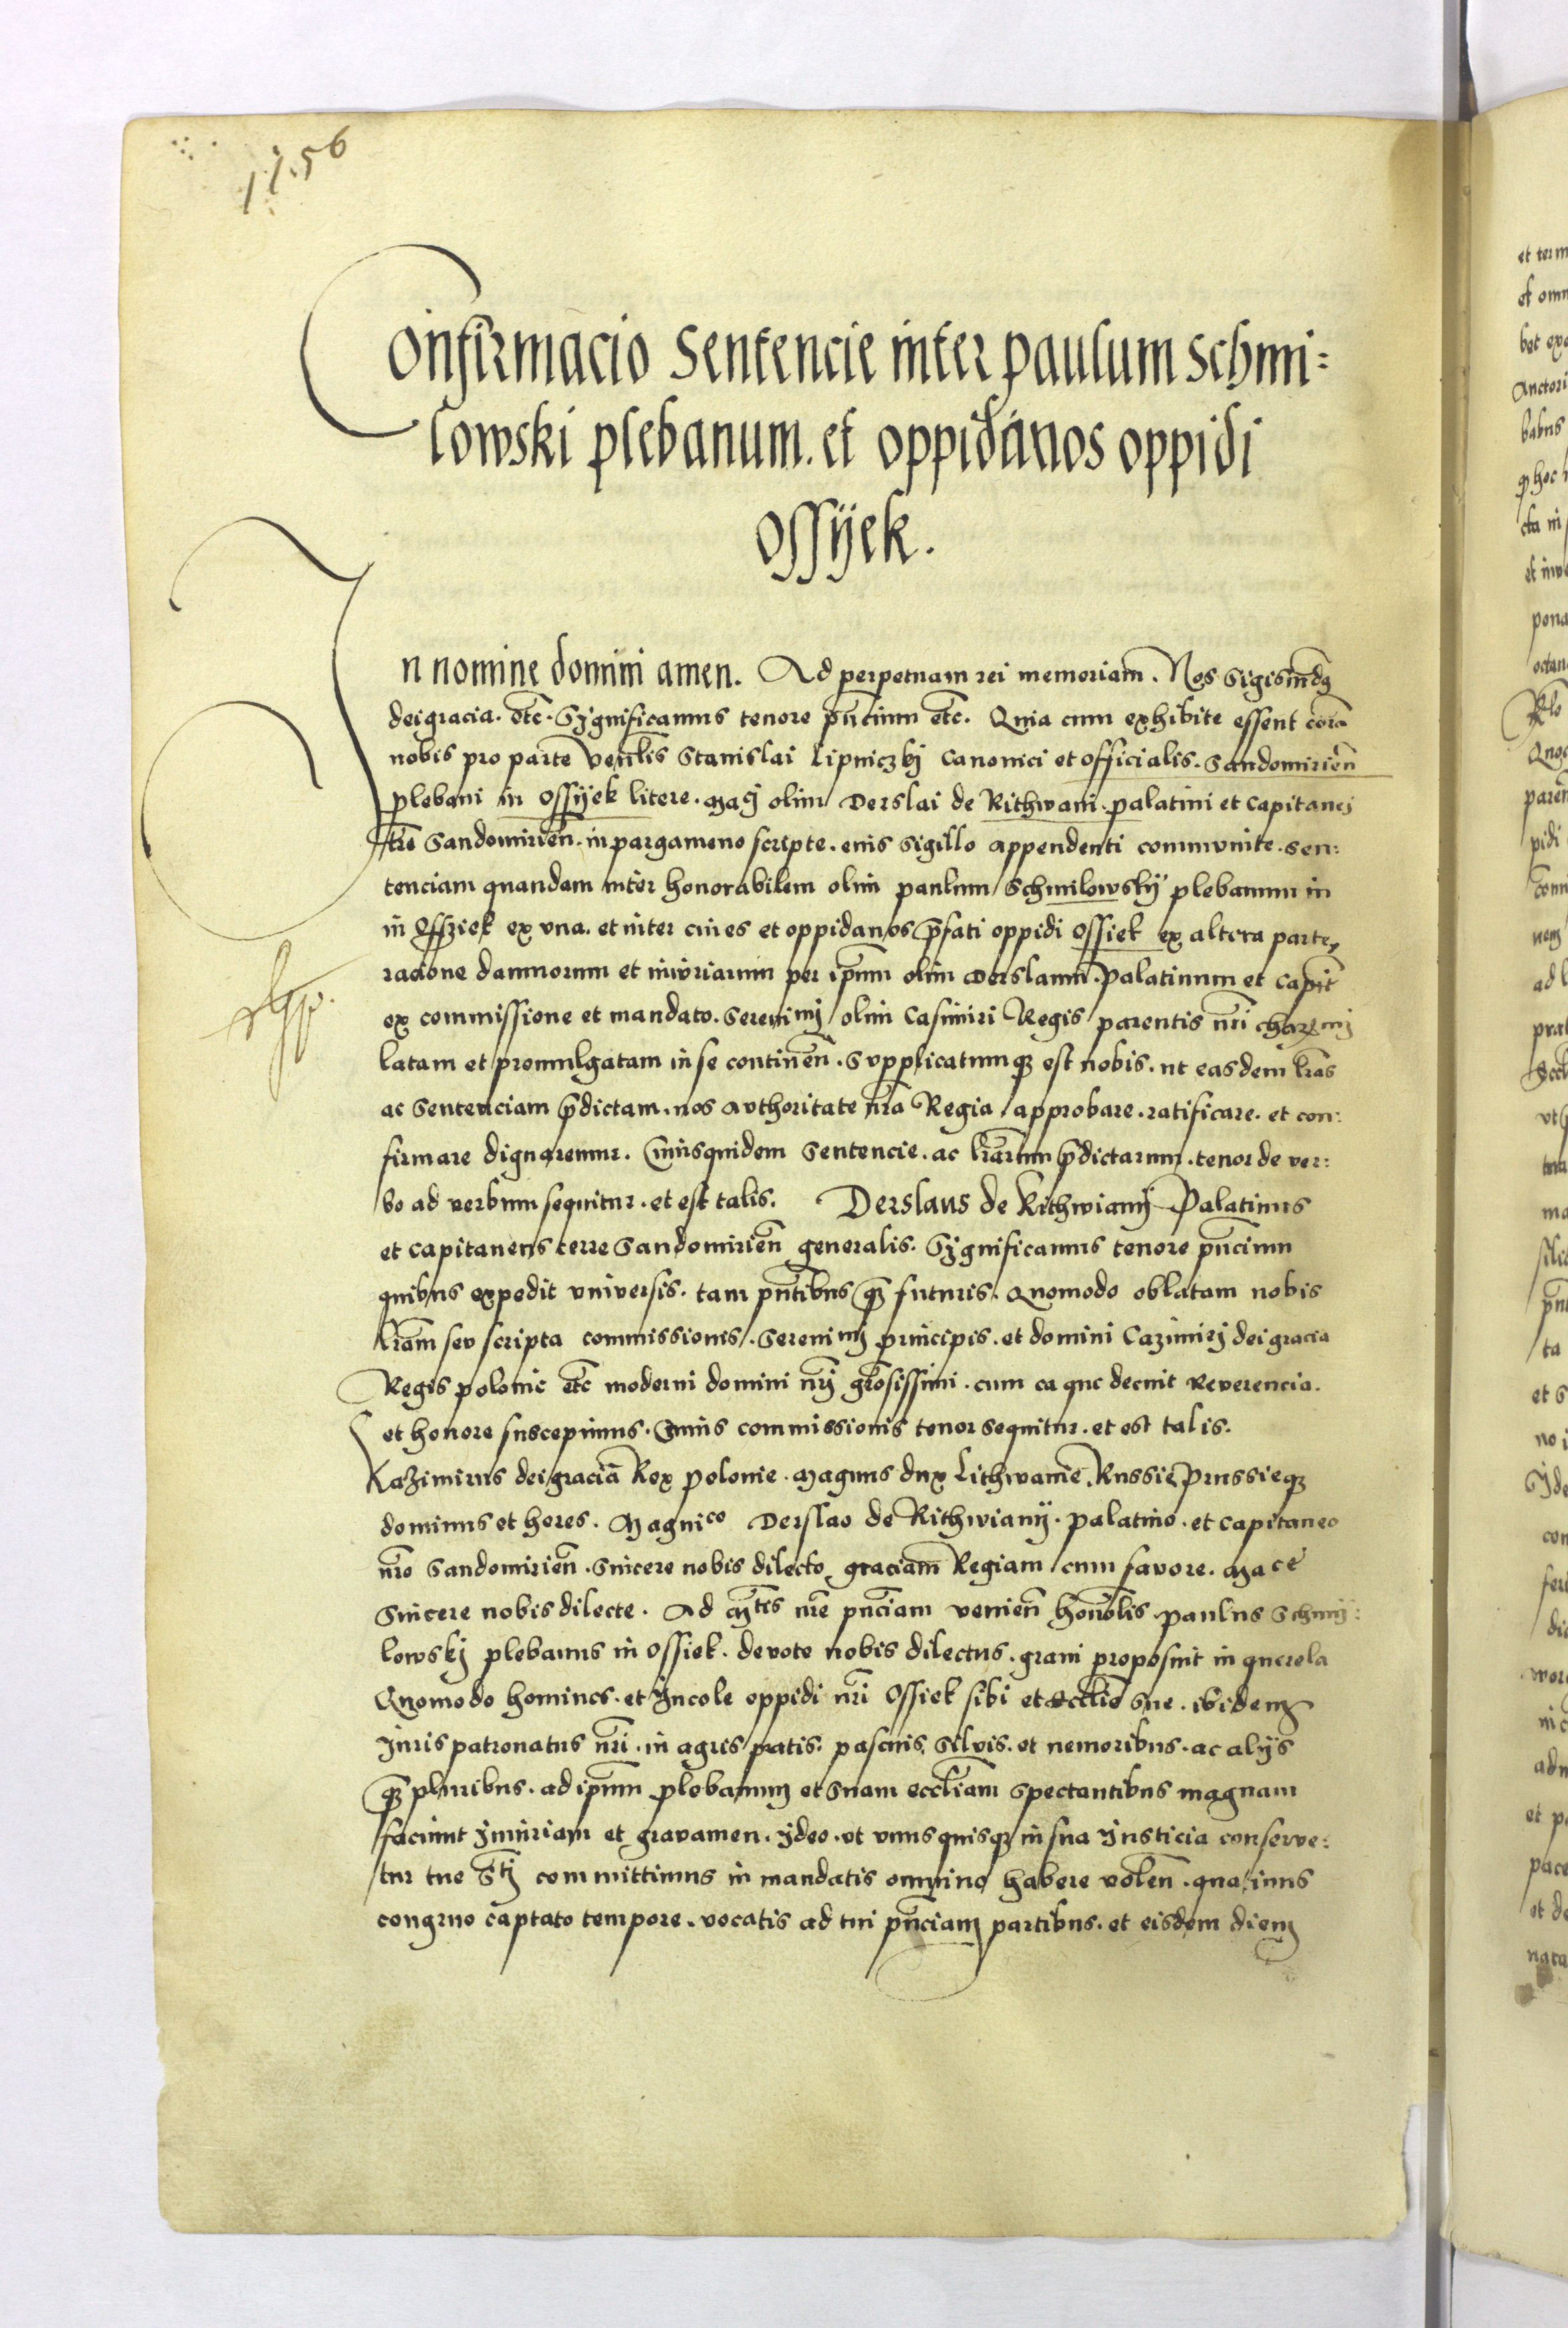 11.56
Confirmacio Sentencie inter paulum Schmi=
lowski plebanum. et oppidanos oppidi
Ossÿek.
In nomine domini amen. Ad perpetuam rei memoriam. Nos Sigism̄dꝫ
dei gracia. etc̄. Significamus tenore pn̄cium etc̄. Quia cum exhibite essent corā
nobis pro parte ven̄lis Stanislai Lipniczkj Canonici et officialis. Sandomirien̄
plebani in Ossÿek litere. Magci olim Derslai de Rithwani. palatini et Capitanei
tr̄e Sandomirien̄. in pargameno scripte. eius sigillo appendenti communite. Sen:
tenciam quandam inter honorabilem olim paulum Schmilowskÿ plebanum in
in Ossziek ex una. et inter ciues et oppidanos p̄fati oppidi Ossiek ex altera parte,
racione damnorum et iniuriarum per ip̄um olim Derslaum. palatinum et Capit̄
ex commissione et mandato. Serenimj olim Casimiri Regis parentis nr̄i charmj
latam et promulgatam in se continen̄. Supplicatumqꝫ est nobis. ut easdem lr̄as
ac Sentenciam p̄dictam. nos authoritate nr̄a Regia approbare. ratificare. et con:
firmare dignaremur. Cuiusquidem Sentencie. ac lr̄arum p̄dictarum. tenor de ver:
bo ad verbum sequitur. et est talis. Derslaus de Rithwianÿ Palatinus
et Capitaneus terre Sandomirien̄ generalis. Significamus tenore pn̄cium
quibus expedit universis. tam pn̄tibus qꝫ futuris. Quomodo oblatam nobis
lr̄am seu scripta commissionis. Serenimj principis. et domini Cazimirj dei gracia
Regis polonie etc̄ moderni domini nr̄j gr̄osissimi. cum ea que decuit Reverencia.
et honore suscepimus. Cuius commissionis tenor sequitur. et est talis.
Kazimirus dei gracia Rex polonie. Magnus dux Lithwanie. Russie prussieqꝫ
dominus et heres. Magnico Derslao de Rithwianÿ. palatino. et Capitaneo
nr̄o Sandomirien̄. Sincere nobis dilecto graciam Regiam cum favore. Mace
Sincere nobis dilecte. Ad M̄tis nr̄e pn̄ciam venien̄ honor̄lis paulus Schmÿ:
lowskj plebanus in Ossiek. devote nobis dilectus. graui proposuit in querela
Quomodo homines. et Incole oppidi nr̄i Ossiek sibi et Eccl̄ie sue. ibidem
Juris patronatus nr̄i. in agris pratis. pascuis. Silvis. et nemoribus. ac alÿs
qꝫ pluribus. ad ip̄um plebanum et suam eccl̄iam spectantibus magnam
faciunt Jniuriam et gravamen. Jdeo. ut unusquisqꝫ in sua Justicia conserve:
tur tue S̄tj committimus in mandatis omnino habere volen̄. quatinus
congruo captato tempore. vocatis ad tui pn̄ciam partibus. et eisdem diem